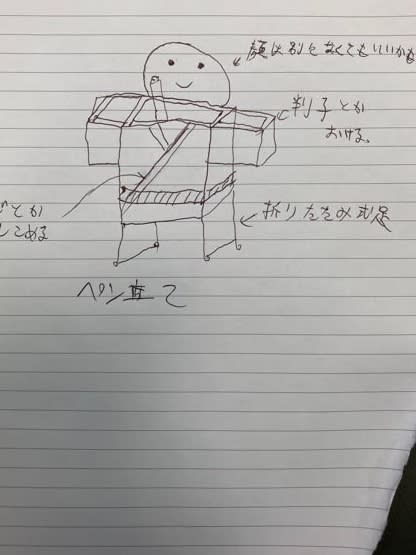 顔は別になくてもいいかも
判子とか
おける。
とか
とめる
折りたたみ式足
ペン立て